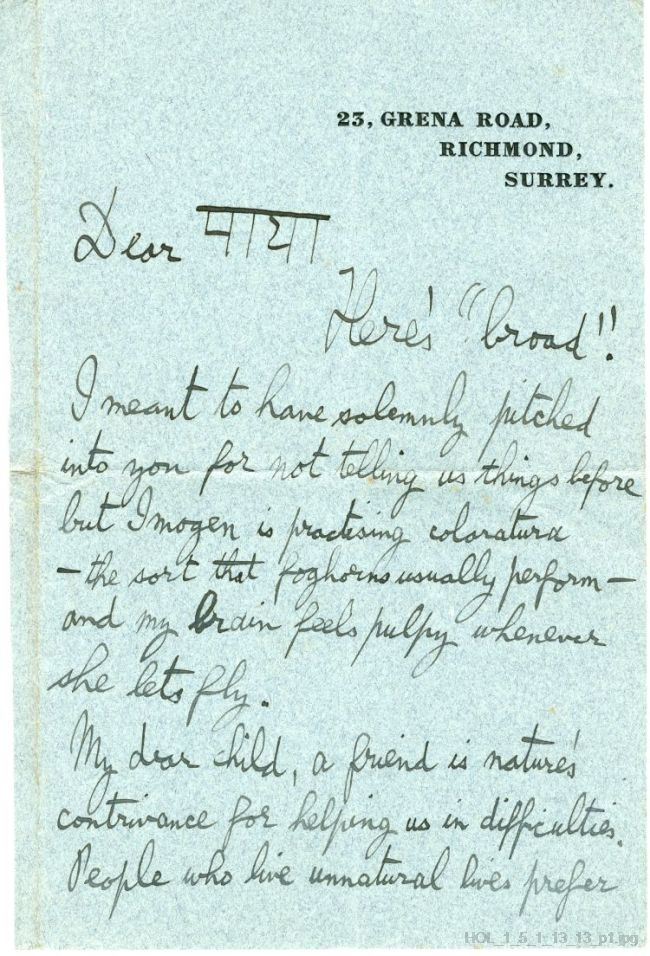 23, GRENA ROAD,
RICHMOND,
SURREY.
Dear पाया
Here's "broad"!
I meant to have solemnly pitched
into you for not telling us things before
but Imogen is practising coloratura
– the sort that foghorns usually perform –
and my brain feels pulpy whenever
she lets fly.
My dear child, a friend is nature's
contrivance for helping us in difficulties.
People who live unnatural lives prefer
HOL_1_5_1_13_13_p1.jpg